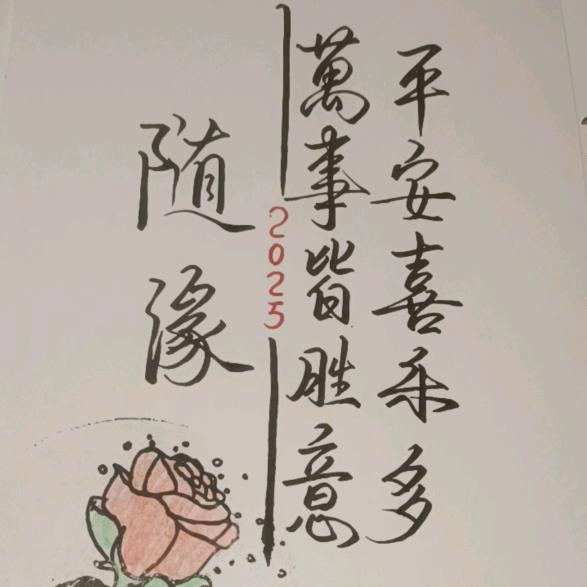 平安喜乐多
萬事皆胜意
2025
随缘